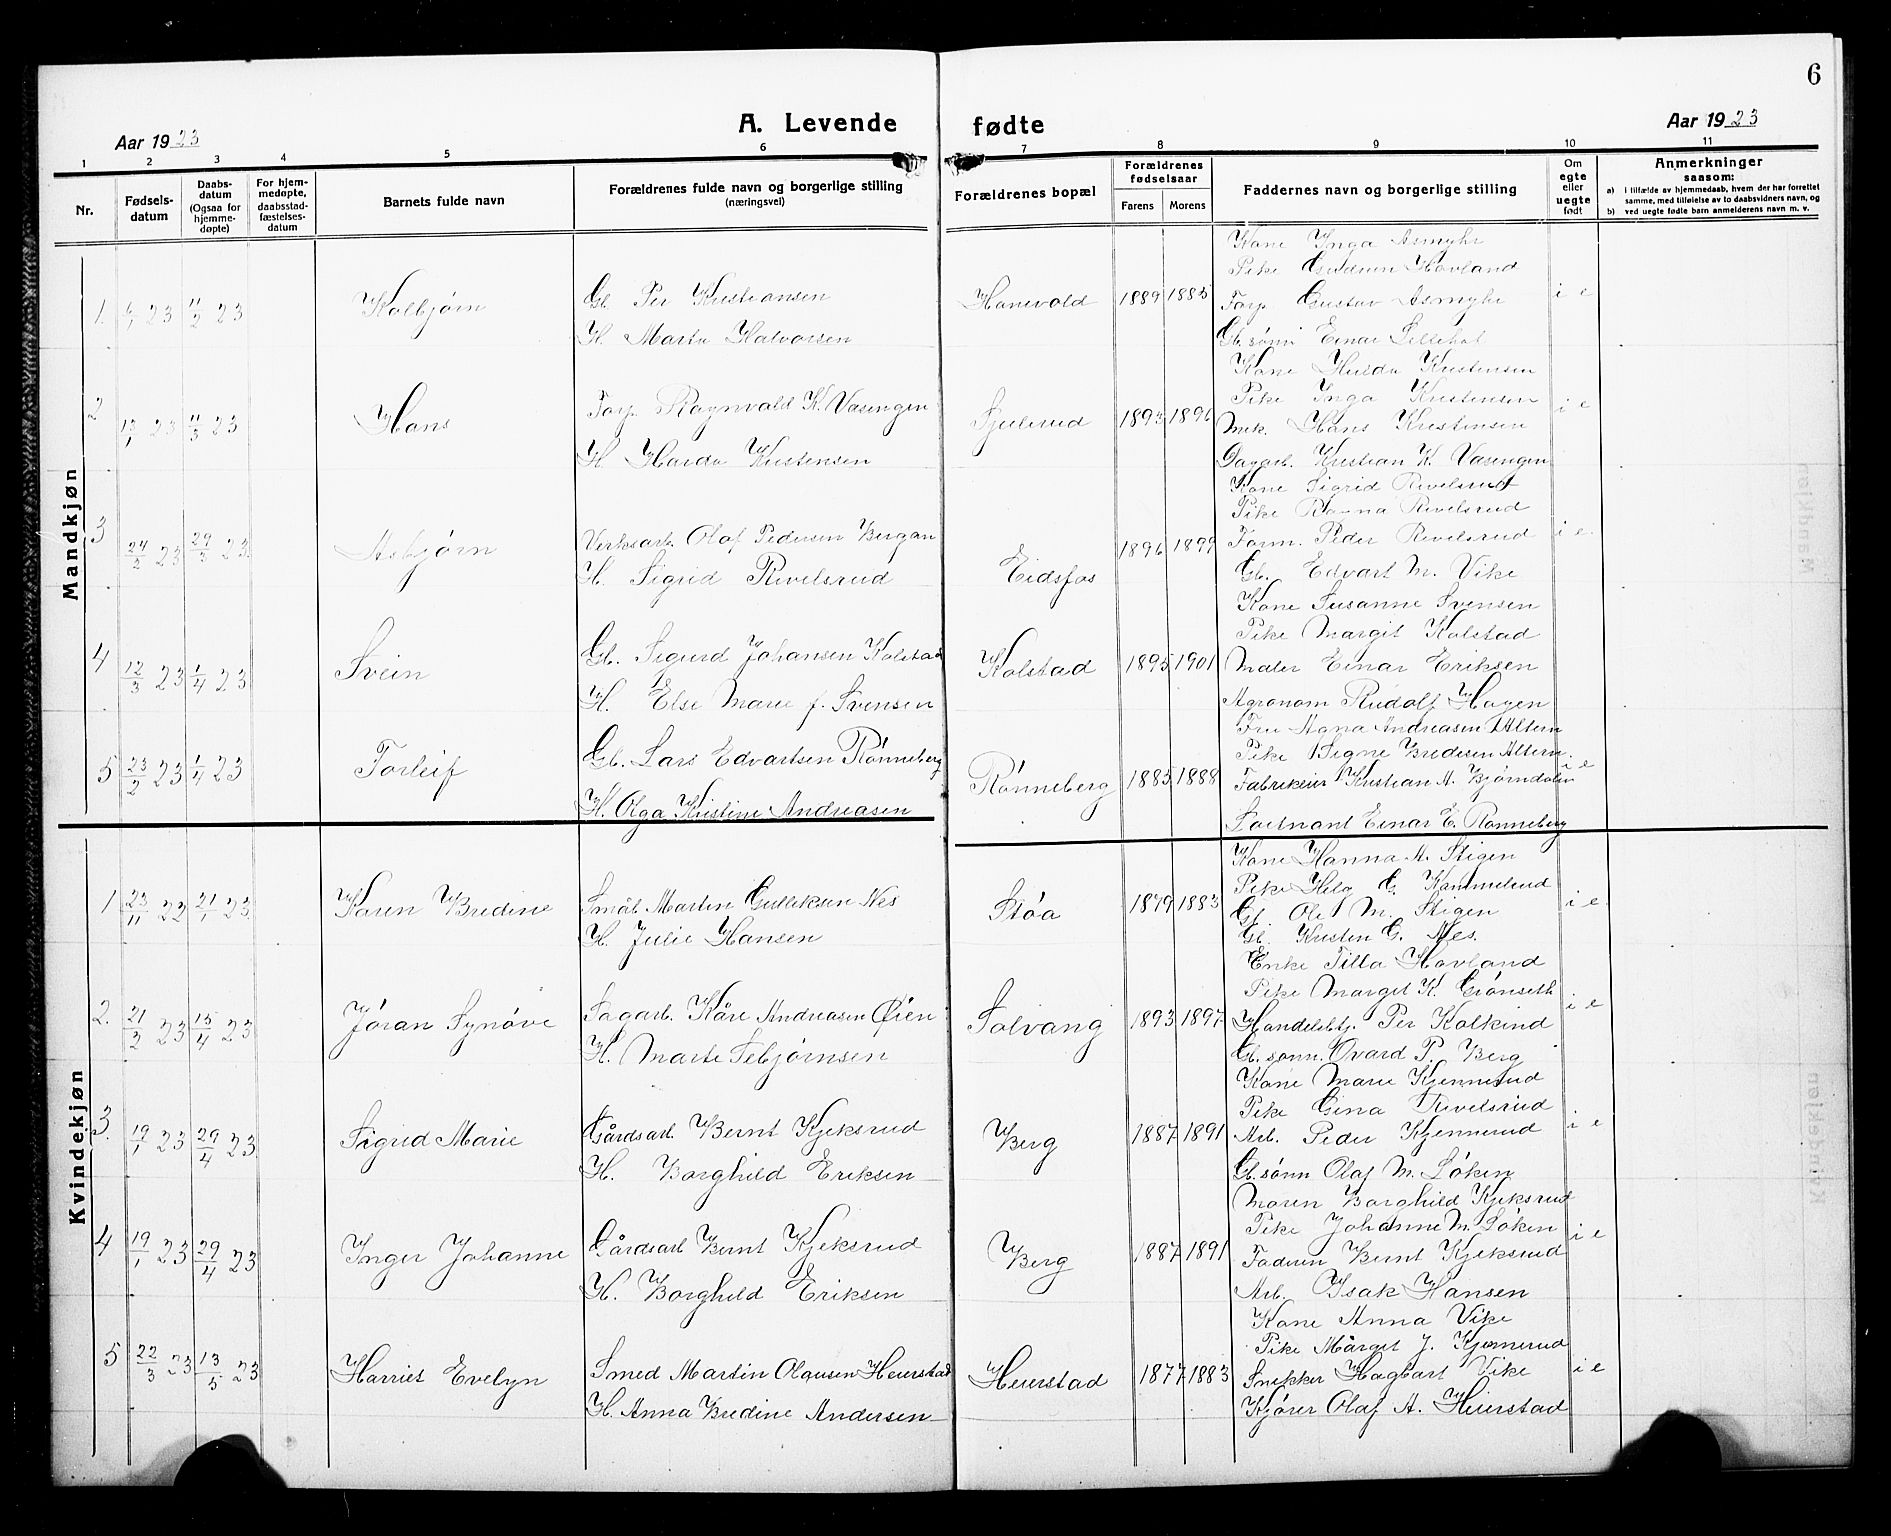 6
A. Levende fødte
Aar 1923
Aar 1923
1 2 3 4 5 6 7 8 9 10 11
Nr.
Fødselsdatum
Daabsdatum (Ogsaa for hjemmedøpte)
For hjemmedøpte, daabsstadfæstelsesdatum
Barnets fulde navn
Forældrenes fulde navn og borgerlige stilling (næringsvei)
Forældrenes bopæl
Forældrenes fødselsaar
Farens
Morens
Faddernes navn og borgerlige stilling
Om egte eller uegte født
Anmerkninger saasom:
a) i tilfælde av hjemmedaab, hvem der har forrettet samme, med tilføielse av to daabsvidners navn, og
b) ved uegte fødte barn anmelderens navn m. v.
Mandkjøn
1. 23 11/2 23
Kolbjørn
Gb. Per Kristiansen
H. Marta Halvorsen
Hanevold
1889 1885
Kone Inga Asmyhr
Pike Gudrun Hovland
Forp. Gustav Asmyhr
Gb. sønn Einar Lillehol
i e
2 13/1 23 11/3 23
Hans
Forp. Ragnvald K. Vasengen
H. Harda Kristensen
Sjulerud
1893 1896
Kone Hulda Kristensen
Pike Inga Kristensen
Mek. Hans Kristensen
Dagarb. Kristian K. Vasengen
i e
3 24/2 23 29/3 23
Asbjørn
Verksarb. Olaf Pedersen Bergan
H. Sigrid Revelsrud
Eidsfos
1896 1899
Kone Sigrid Revelsrud
Pike Ragna Revelsrud
Form. Peder Revelsrud
Gb. Edvart M. Vike
i e.
4 12/3 23 1/4 23
Svein
Gb. Sigurd Johansen Kolstad
H. Else Marie f. Svensen
Kolstad
1895 1901
Kone Susanne Svensen
Pike Margit Kolstad
Maler Einar Eriksen
Agronom Rudolf Hagen
5 23/2 23 1/4 23
Torleif
Gb. Lars Edvartsen Rønneberg
H. Olga Kristine Andreasen
Rønneberg
1885 1888
Fru Agna Andreasen Altern
Pike Signe Bredesen Altern.
Fabrikeier Kristian A. Bjørndalen
Løitnant Einar E. Rønneberg
i e
Kvindekjøn
1 23/11 22 21/1 23
Karen Bredine
Småb. Martin Gulliksen Nes
H. Julie Hansen
Støa
1879 1883
Kone Hanna A. Stigen
Pike Helg G. Kammelrud
Gb. Ole M. Stigen
Gb. Kristen G. Nes.
i e.
2. 21/2 23 15/4 23
Jøran Synøve
Sagarb. Kåre Andreasen Øien
H. Marte Sebjørnsen
Solvang
1893 1897
Enke Tilla Hovland
Pike Margit K. Grønseth
Handelsbtj. Per Kolkind
Gb. sønn. Ovard P. Berg
i e
3. 19/1 23 29/4 23
Sigrid Marie
Gårdsarb. Bernt Kjeksrud
H. Borghild Eriksen
Berg
1887 1891
Kone Marie Kjennerud
Pike Gina Revelsrud
Arb. Peder Kjennerud
Gb. sønn Olaf M. Løken
i e
4 19/1 23 29/4 23
Inger Johanne
Gårdsarb Bernt Kjeksrud
H. Borghild Eriksen
Berg
1887 1891
Moren Borghild Kjeksrud
Pike Johanne M. Løken
Faderen Bernt Kjeksrud
Arb. Isak Hansen
i e
5 22/3 23 13/5 23
Harriet Evelyn
Smed Martin Olausen Heierstad
H. Anna Bredine Andersen
Heierstad
1877 1883
Kone Anna Vike
Pike Mårget J. Kjennerud
Snekker Hagbart Vike
Kjører Olaf A. Heierstad
i e